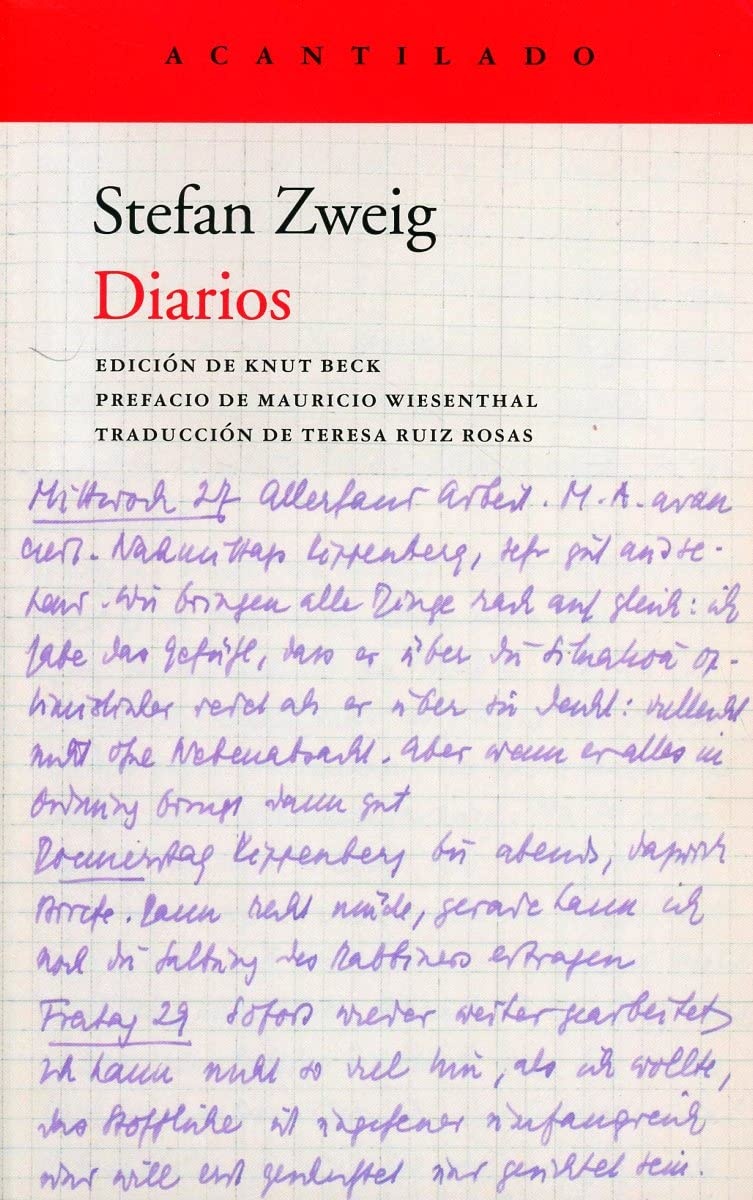 ACANTILADO
Stefan Zweig
Diarios
EDICIÓN DE KNUT BECK
PREFACIO DE MAURICIO WIESENTHAL
TRADUCCIÓN DE TERESA RUIZ ROSAS
Mittwoch 27 Allerhand Arbeit. M. A. avan
ciert. Nachmittags Kippenberg, sehr gut
Wir bringen alle Dinge rasch auf gleich: ich
habe das Gefühl, dass er über die Situation op-
timistischer redet als er über sie denkt: vielleicht
nicht ohne Nebenabsicht. Aber wenn er alles in
Ordnung bringt dann gut
Donnerstag Kippenberg bis abends,
Dann recht müde, gerade kann ich
noch die Salbung des Rabbiners ertragen
Freitag 29 Sofort wieder weitergearbeitet
Ich kann nicht so viel hin, als ich wollte,
das Stoffliche ist ungeheuer umfangreich
und will erst gesichtet sein.